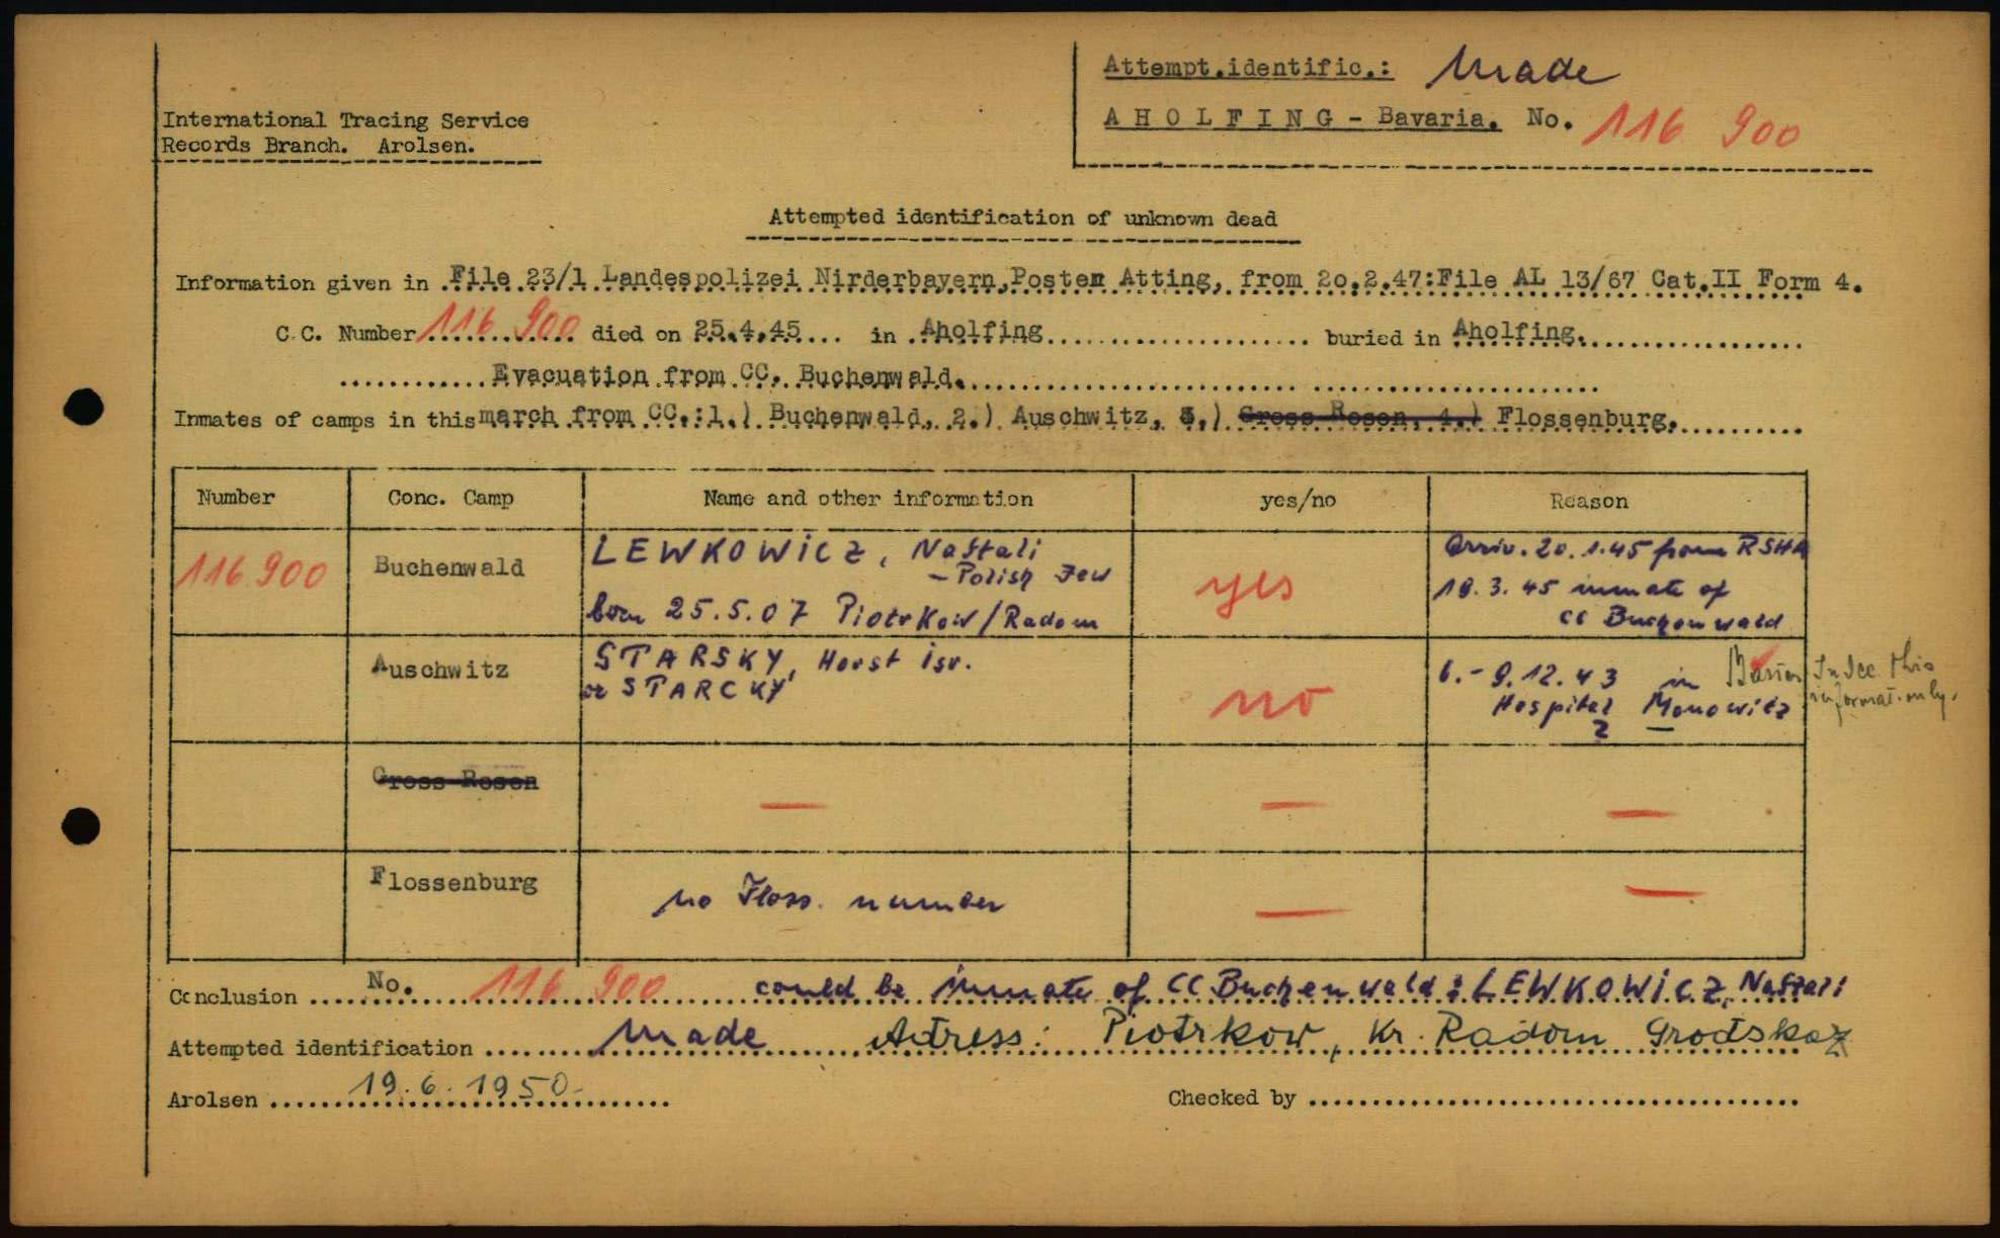 Attempt.identific.: Made
International Tracing Service
Records Branch. Arolsen.
A H O L F I N G - Bavaria. No. 116 900
Attempted identification of unknown dead
Information given in File 23/1 Landespolizei Nirderbayern,Posten Atting, from 20.2.47:File AL 13/67 Cat.II Form 4.
C.C. Number 116 900 died on 25.4.45 in Aholfing buried in Aholfing.
Evacuation from CC. Buchenwald.
Inmates of camps in this march from CC.:1.) Buchenwald, 2.) Auschwitz, 3.) Gross Rosen, 4.) Flossenburg.
Number Conc. Camp Name and other information yes/no Reason
116 900 Buchenwald LEWKOWICZ, Naftali yes Arriv. 20.1.45 from RSHA
- Polish Jew 10.3.45 inmate of
born 25.5.07 Piotrkow/Radom CC Buchenwald
Auschwitz STARSKY, Horst Isr. no 6.- 9.12.43 in
or STARCKY Hospital Monowitz
this
informat. only.
Gross Rosen — — —
Flossenburg no Floss. number — —
Conclusion No. 116 900 could be inmate of CC Buchenwald: LEWKOWICZ, Naftali
Attempted identification Made Adress: Piotrkow, Kr. Radom
Arolsen 19.6.1950. Checked by